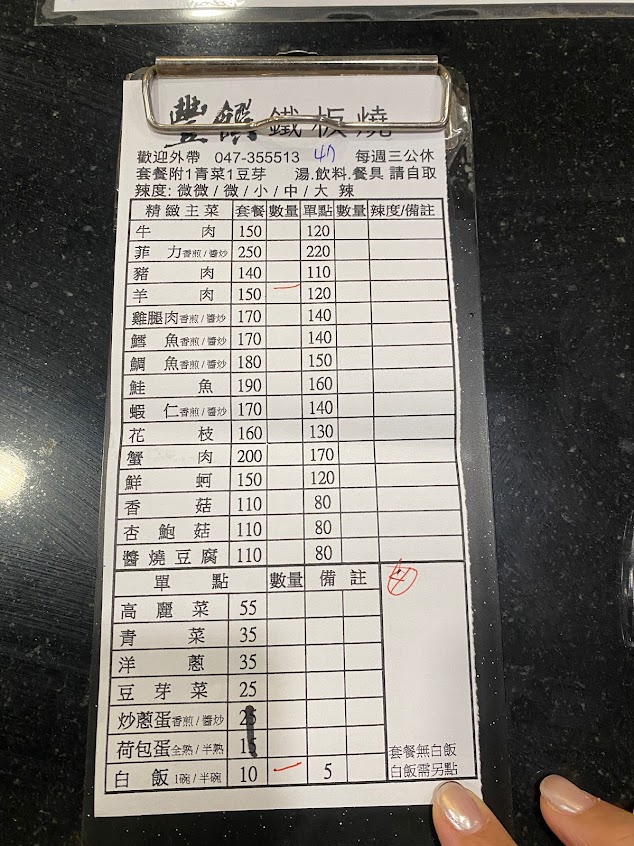 豐饌鐵板燒
歡迎外帶 047-355513 47 每週三公休
套餐附1青菜1豆芽 湯.飲料.餐具 請自取
辣度: 微微 / 微 / 小 / 中 / 大 辣
精緻主菜 套餐 數量 單點 數量 辣度/備註
牛肉 150 120
菲力香煎/醬炒 250 220
豬肉 140 110
羊肉 150 120
雞腿肉香煎/醬炒 170 140
鱈魚香煎/醬炒 170 140
鯛魚香煎/醬炒 180 150
鮭魚 190 160
蝦仁香煎/醬炒 170 140
花枝 160 130
蟹肉 200 170
鮮蚵 150 120
香菇 110 80
杏鮑菇 110 80
醬燒豆腐 110 80
單點 數量 備註 4
高麗菜 55
青菜 35
洋蔥 35
豆芽菜 25
炒蔥蛋香煎/醬炒
荷包蛋全熟/半熟
套餐無白飯
白飯 1碗/半碗 10 5 白飯需另點